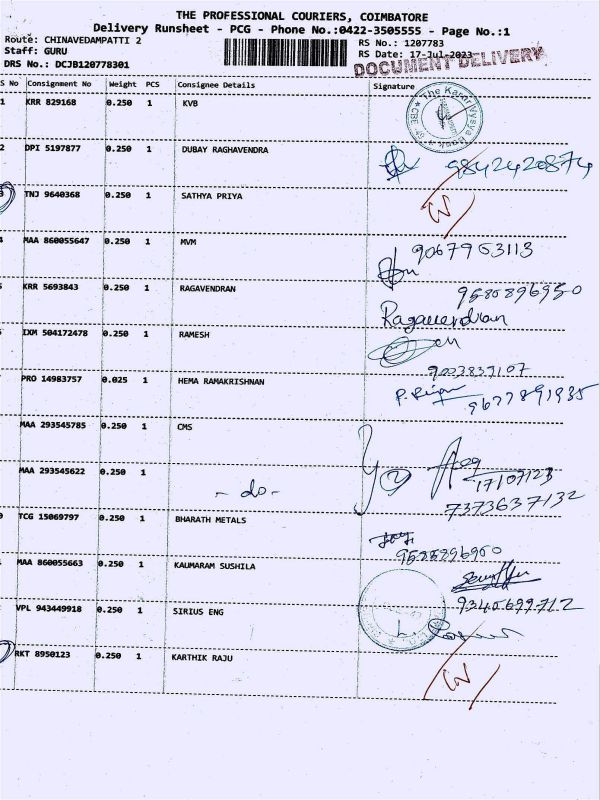 THE PROFESSIONAL COURIERS, COIMBATORE
Delivery Runsheet - PCG - Phone No.:0422-3505555 - Page No.:1
Route: CHINAVEDAMPATTI 2
RS No.: 1207783
Staff: GURU
RS Date: 17-Jul-2023
DRS No.: DCJB120778301
DOCUMENT DELIVERY
S No Consignment No Weight PCS Consignee Details Signature
1 KRR 829168 0.250 1 KVB
The Karur Vysya Bank
CBE
2 DPI 5197877 0.250 1 DUBAY RAGHAVENDRA
9842420874
3 TNJ 9640368 0.250 1 SATHYA PRIYA
4 MAA 860055647 0.250 1 MVM
9067953113
5 KRR 5693843 0.250 1 RAGAVENDRAN
9585896950
Ragavendran
IXM 504172478 0.250 1 RAMESH
9003839107
PRO 14983757 0.025 1 HEMA RAMAKRISHNAN
9677891935
MAA 293545785 0.250 1 CMS
MAA 293545622 0.250 1 - do -
17/07/23
7373637132
TCG 15069797 0.250 1 BHARATH METALS
9585896950
MAA 860055663 0.250 1 KAUMARAM SUSHILA
9340699712
VPL 943449918 0.250 1 SIRIUS ENG
RKT 8950123 0.250 1 KARTHIK RAJU